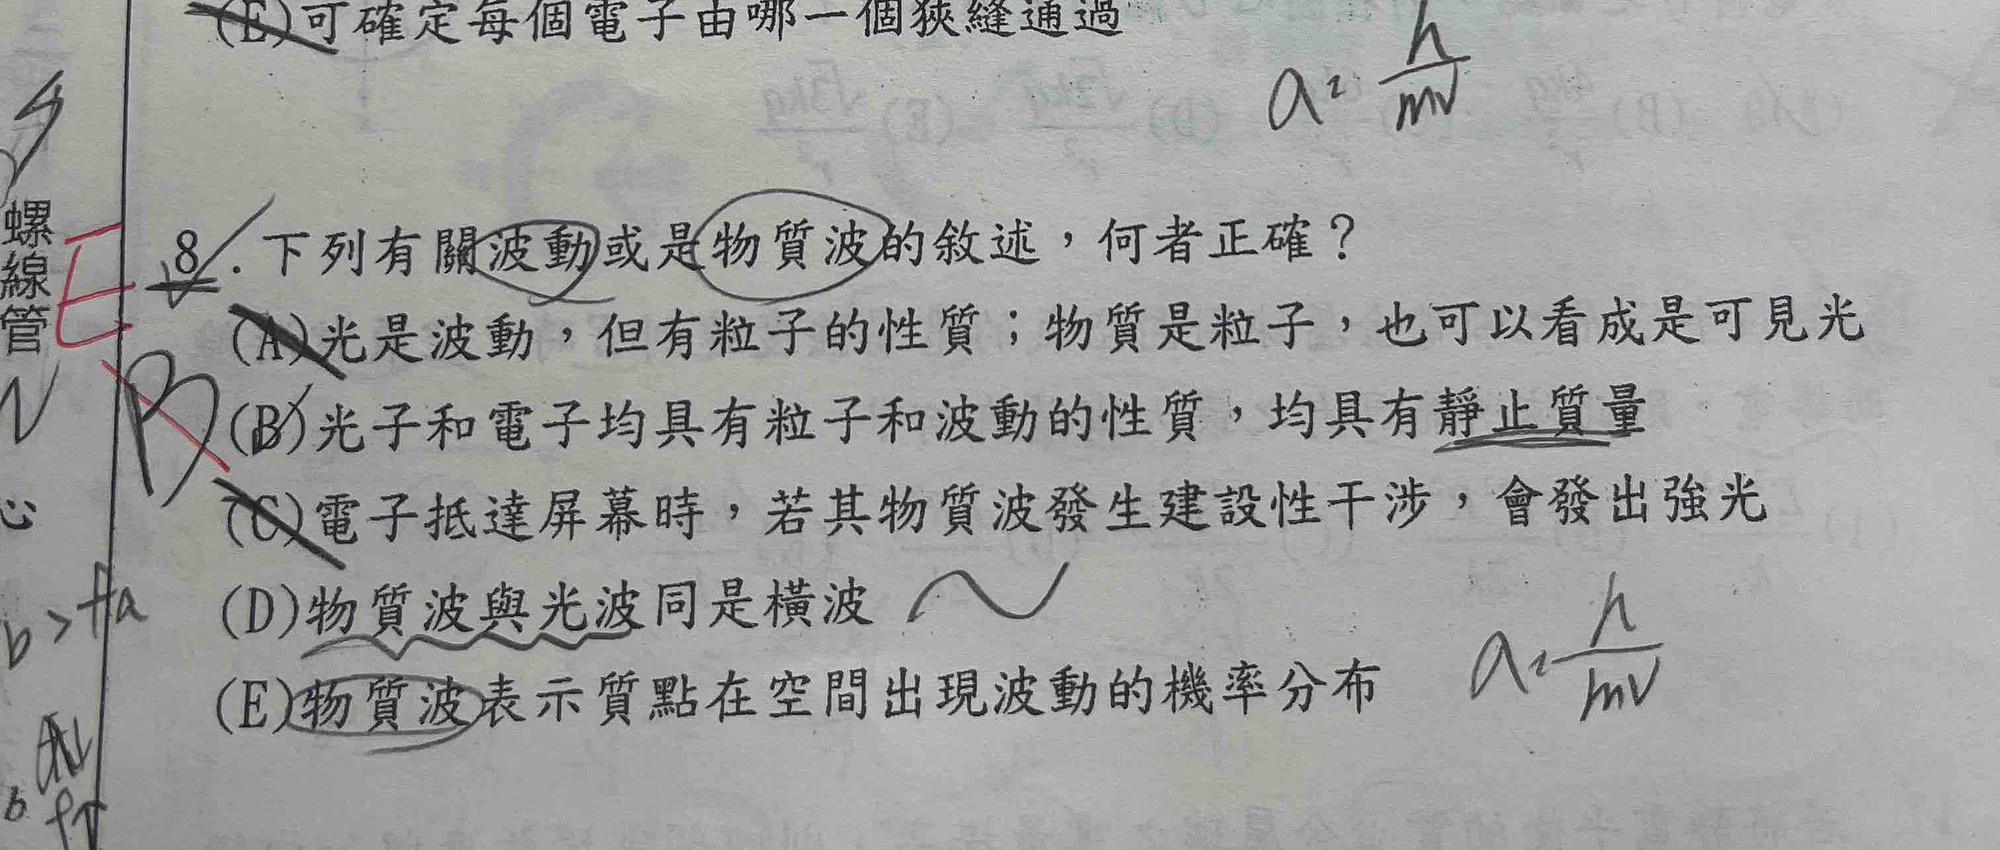 (E)可確定每個電子由哪一個狹縫通過
λ=h/mv
螺線管
E
B
8.下列有關波動或是物質波的敘述，何者正確？
(A)光是波動，但有粒子的性質；物質是粒子，也可以看成是可見光
(B)光子和電子均具有粒子和波動的性質，均具有靜止質量
(C)電子抵達屏幕時，若其物質波發生建設性干涉，會發出強光
(D)物質波與光波同是橫波
(E)物質波表示質點在空間出現波動的機率分布
λ=h/mv
N
心
b > fa